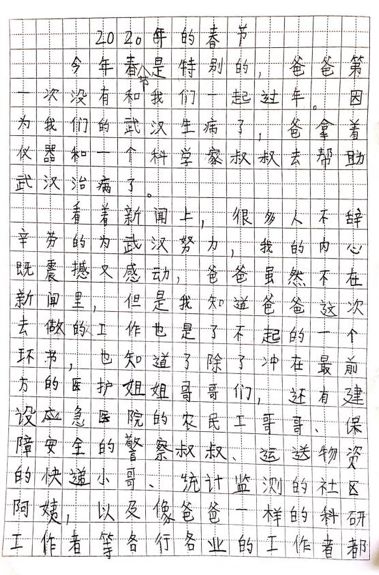 2020年的春节
今年春节是特别的，爸爸第
一次没有和我们一起过年。因
为我们的武汉生病了，爸拿着
仪器和一个科学家叔叔去帮助
武汉治病了。
看着新闻上，很多人不辞
辛劳的为武汉努力，我的内心
既震撼又感动，爸爸虽然不在
新闻里，但是我知道爸爸这次
去做的工作也是了不起的一个
环节，也知道了除了冲在最前
方的医护姐姐哥哥们，还有建
设应急医院的农民工哥哥、保
障安全的警察叔叔、运送物资
的快递小哥、统计监测的社区
阿姨，以及像爸爸一样的科研
工作者等各行各业的工作者都